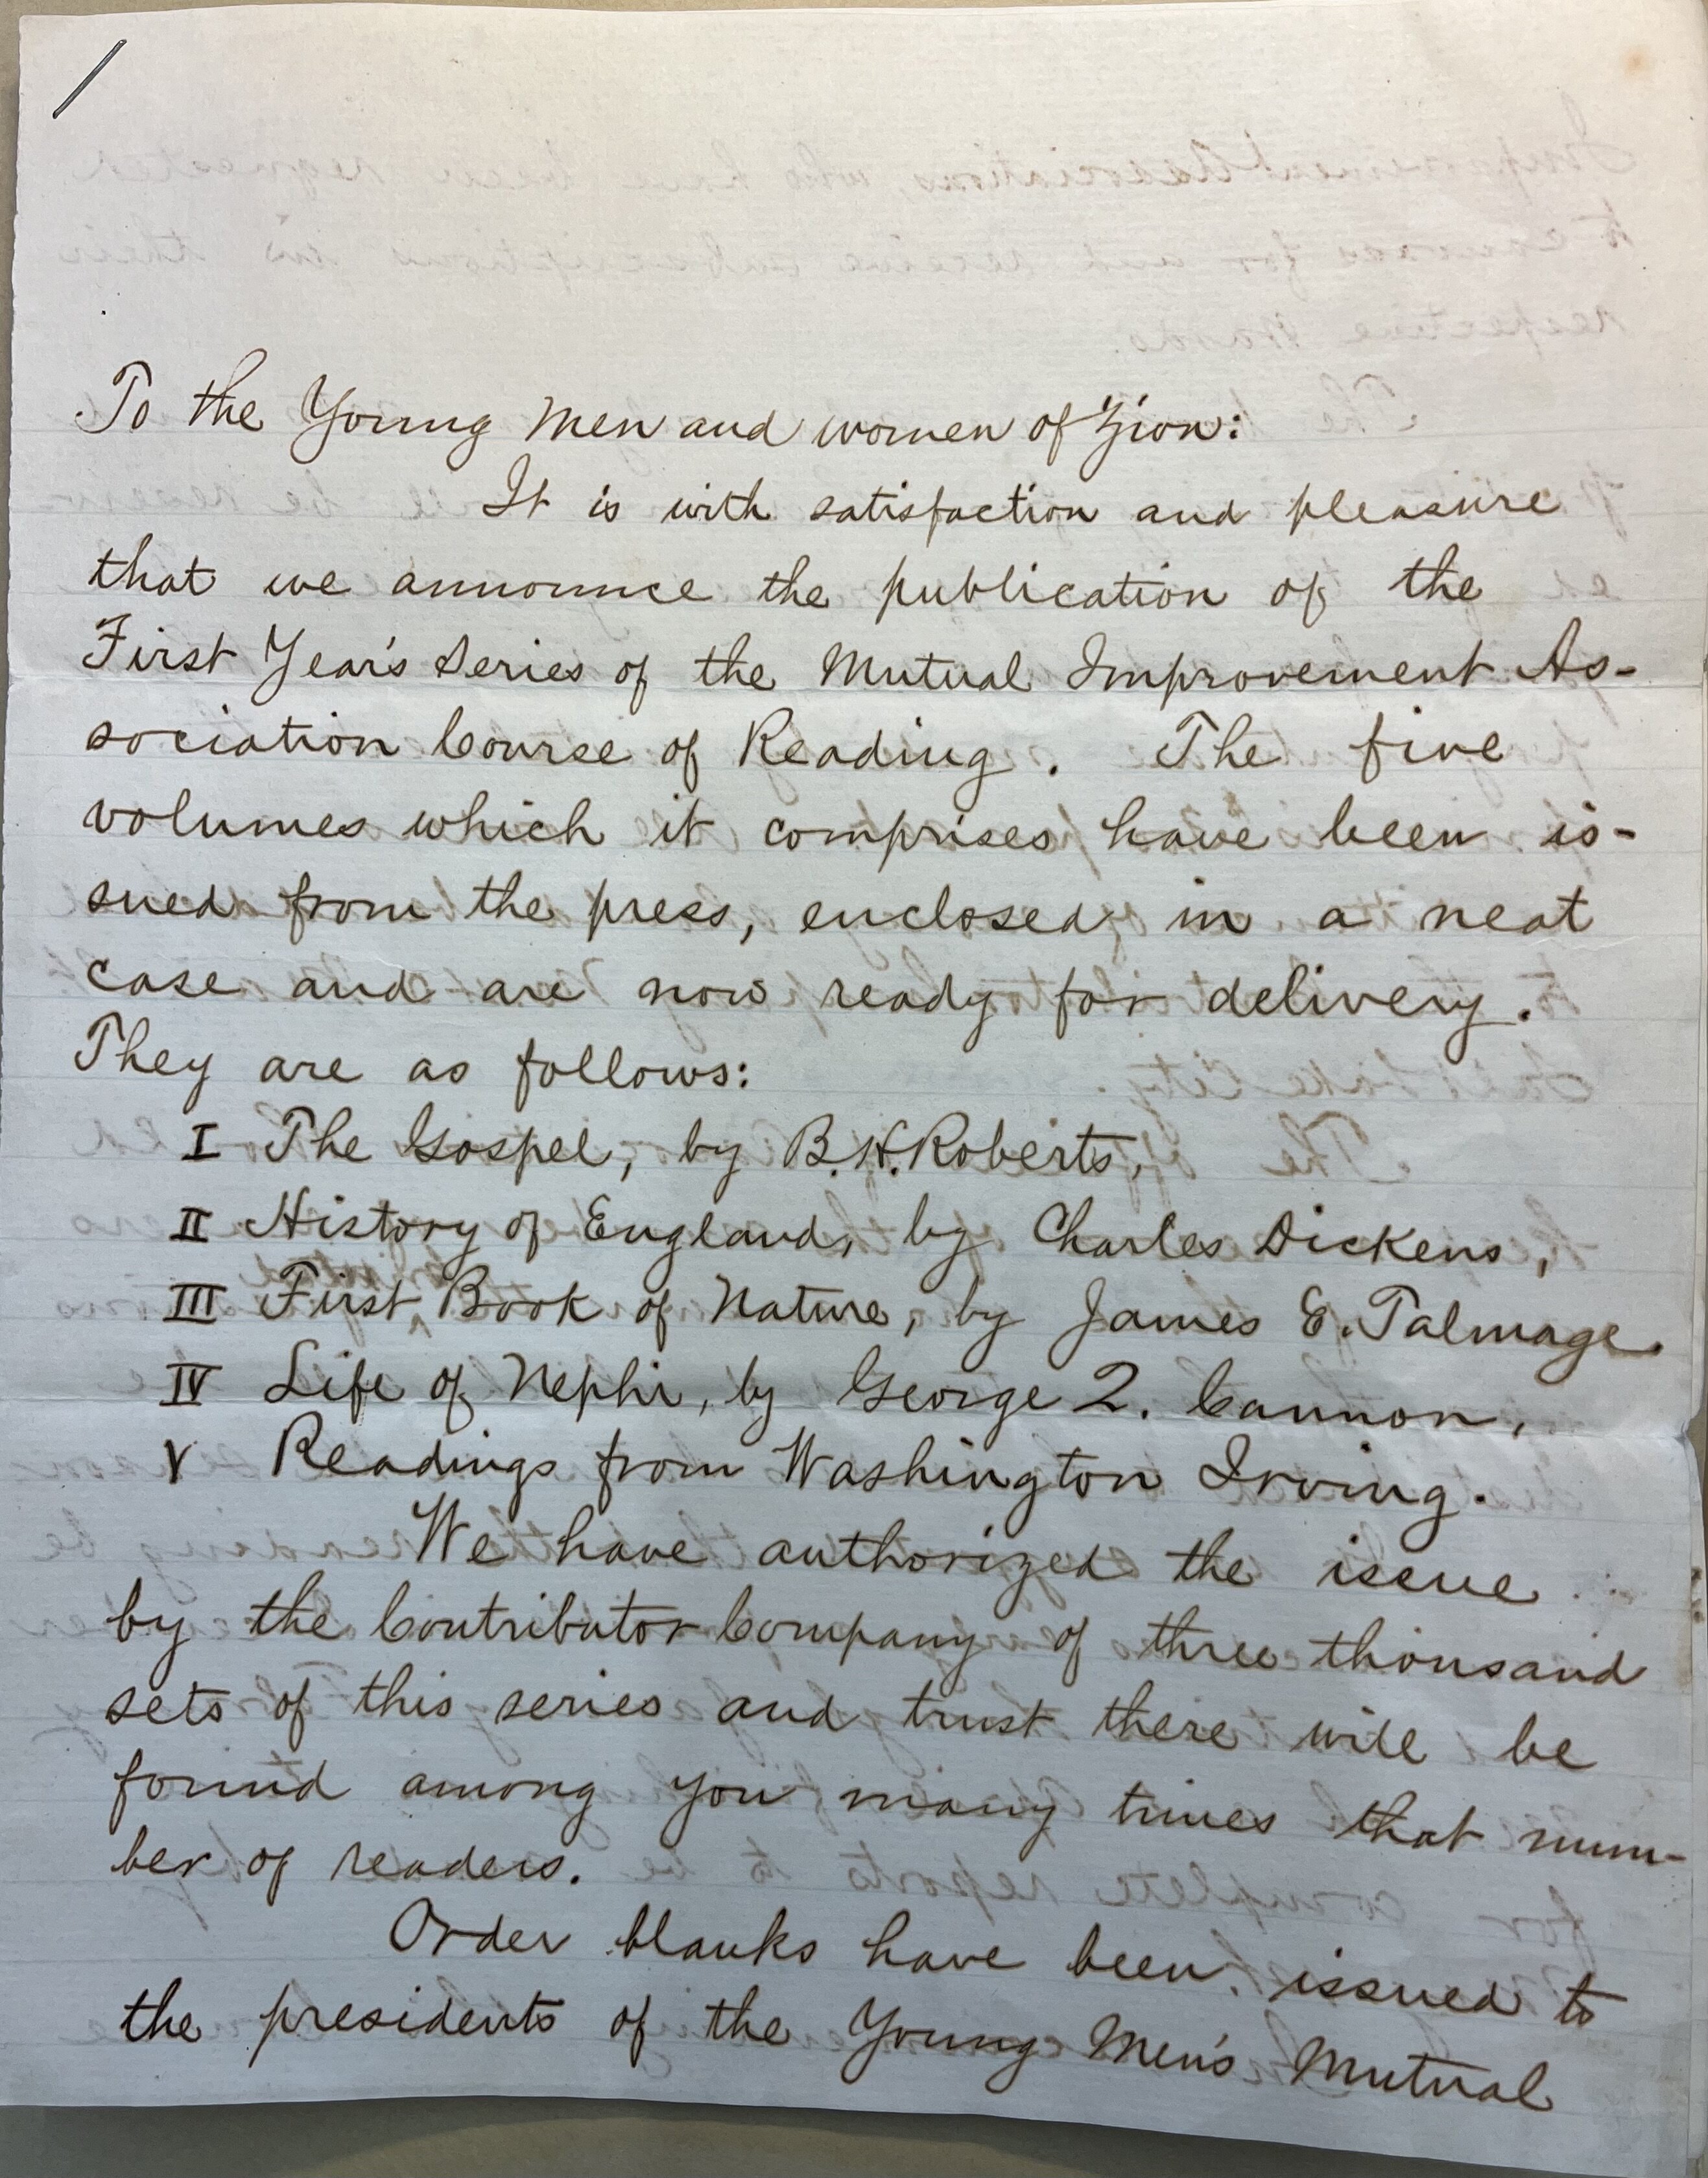 To the Young Men and women of Zion:
It is with satisfaction and pleasure
that we announce the publication of the
First Year's Series of the Mutual Improvement As-
sociation Course of Reading. The five
volumes which it comprises have been is-
sued from the press, enclosed in a neat
case and are now ready for delivery.
They are as follows:
I The Gospel, by B.H. Roberts,
II History of England, by Charles Dickens,
III First Book of Nature, by James E. Talmage
IV Life of Nephi, by George Q. Cannon,
V Readings from Washington Irving.
We have authorized the issue
by the Contributor Company of three thousand
sets of this series and trust there will be
found among you many times that num-
ber of readers.
Order blanks have been issued to
the presidents of the Young Men's Mutual